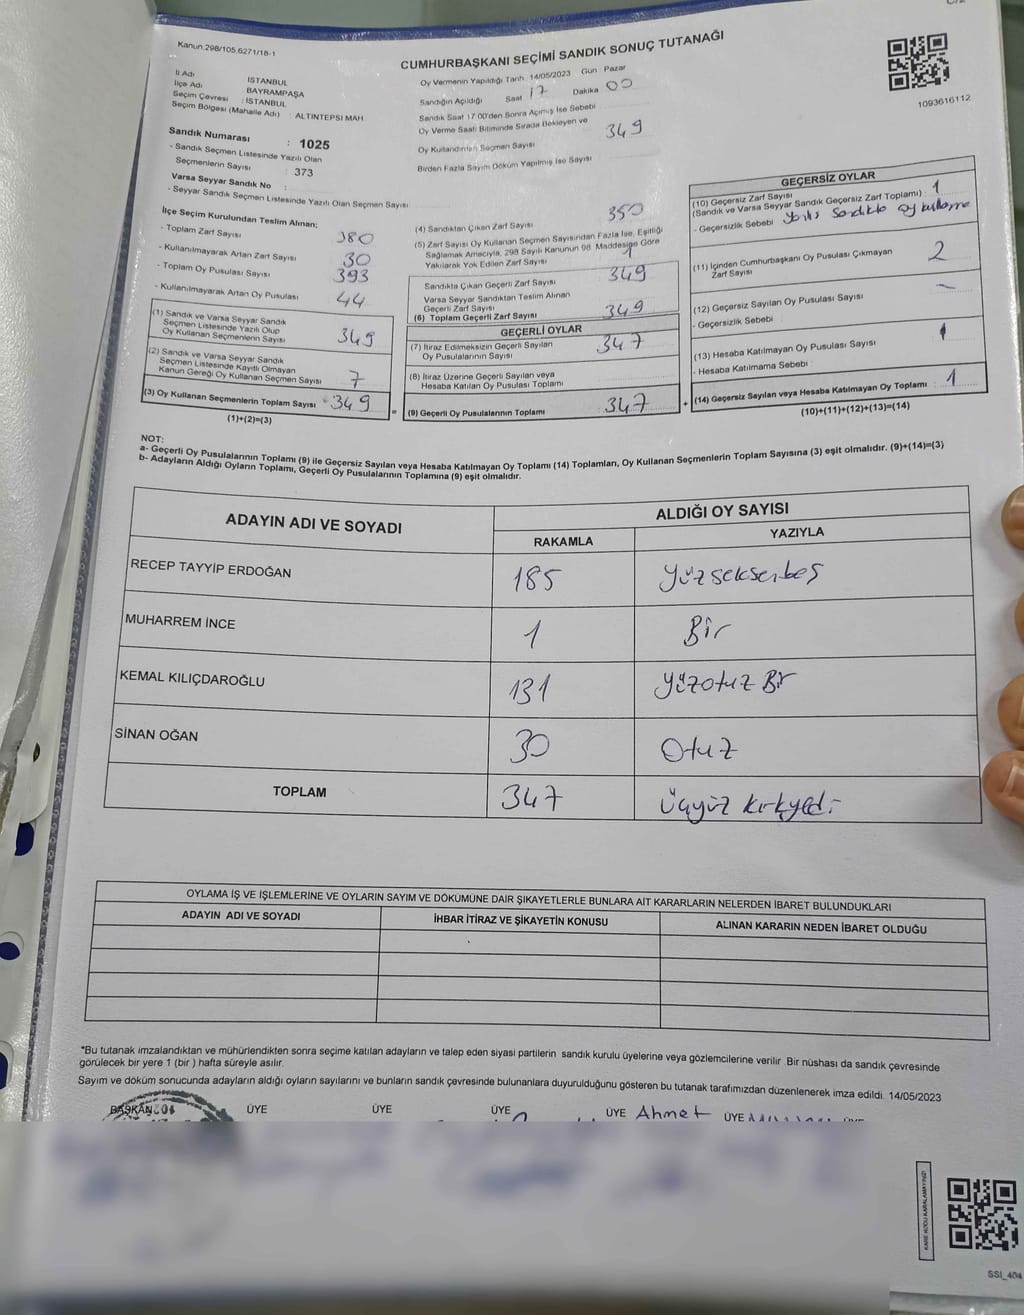 Kanun.298/105,6271/18-1
CUMHURBAŞKANI SEÇİMİ SANDIK SONUÇ TUTANAĞI
İl Adı : İSTANBUL
İlçe Adı BAYRAMPAŞA
Seçim Çevresi : İSTANBUL
Seçim Bölgesi (Mahalle Adı) : ALTINTEPSİ MAH.
Sandık Numarası : 1025
- Sandık Seçmen Listesinde Yazılı Olan
Seçmenlerin Sayısı : 373
Varsa Seyyar Sandık No :
- Seyyar Sandık Seçmen Listesinde Yazılı Olan Seçmen Sayısı :
Oy Vermenin Yapıldığı Tarih 14/05/2023 Gün Pazar
Sandığın Açıldığı Saat 17 Dakika 00
Sandık Saat 17.00'den Sonra Açılmış İse Sebebi
Oy Verme Saati Bitiminde Sırada Bekleyen ve
Oy Kullandırılan Seçmen Sayısı 349
Birden Fazla Sayım Döküm Yapılmış İse Sayısı
1093616112
İlçe Seçim Kurulundan Teslim Alınan;
- Toplam Zarf Sayısı 380
- Kullanılmayarak Artan Zarf Sayısı 30
- Toplam Oy Pusulası Sayısı 393
- Kullanılmayarak Artan Oy Pusulası 44
(1) Sandık ve Varsa Seyyar Sandık
Seçmen Listesinde Yazılı Olup
Oy Kullanan Seçmenlerin Sayısı 349
(2) Sandık ve Varsa Seyyar Sandık
Seçmen Listesinde Kayıtlı Olmayan
Kanun Gereği Oy Kullanan Seçmen Sayısı
(3) Oy Kullanan Seçmenlerin Toplam Sayısı 349
(1)+(2)=(3)
(4) Sandıktan Çıkan Zarf Sayısı 350
(5) Zarf Sayısı Oy Kullanan Seçmen Sayısından Fazla İse, Eşitliği
Sağlamak Amacıyla, 298 Sayılı Kanunun 98. Maddesine Göre
Yakılarak Yok Edilen Zarf Sayısı 1
Sandıkta Çıkan Geçerli Zarf Sayısı 349
Varsa Seyyar Sandıktan Teslim Alınan
Geçerli Zarf Sayısı
(6) Toplam Geçerli Zarf Sayısı 349
GEÇERLİ OYLAR
(7) İtiraz Edilmeksizin Geçerli Sayılan
Oy Pusulalarının Sayısı 347
(8) İtiraz Üzerine Geçerli Sayılan veya
Hesaba Katılan Oy Pusulası Toplamı
= (9) Geçerli Oy Pusulalarının Toplamı 347
GEÇERSİZ OYLAR
(10) Geçersiz Zarf Sayısı
(Sandık ve Varsa Seyyar Sandık Geçersiz Zarf Toplamı) 1
- Geçersizlik Sebebi sandıkta oy
(11) İçinden Cumhurbaşkanı Oy Pusulası Çıkmayan
Zarf Sayısı 2
(12) Geçersiz Sayılan Oy Pusulası Sayısı
- Geçersizlik Sebebi
(13) Hesaba Katılmayan Oy Pusulası Sayısı 1
- Hesaba Katılmama Sebebi
+ (14) Geçersiz Sayılan veya Hesaba Katılmayan Oy Toplamı : 1
(10)+(11)+(12)+(13)=(14)
NOT:
a- Geçerli Oy Pusulalarının Toplamı (9) ile Geçersiz Sayılan veya Hesaba Katılmayan Oy Toplamı (14) Toplamları, Oy Kullanan Seçmenlerin Toplam Sayısına (3) eşit olmalıdır. (9)+(14)=(3)
b- Adayların Aldığı Oyların Toplamı, Geçerli Oy Pusulalarının Toplamına (9) eşit olmalıdır.
ADAYIN ADI VE SOYADI
ALDIĞI OY SAYISI
RAKAMLA YAZIYLA
RECEP TAYYİP ERDOĞAN 185 Yüzseksenbeş
MUHARREM İNCE 1 Bir
KEMAL KILIÇDAROĞLU 131 Yüzotuz Bir
SİNAN OĞAN 30 Otuz
TOPLAM 347 Üçyüz kırkyedi
OYLAMA İŞ VE İŞLEMLERİNE VE OYLARIN SAYIM VE DÖKÜMÜNE DAİR ŞİKAYETLERLE BUNLARA AİT KARARLARIN NELERDEN İBARET BULUNDUKLARI
ADAYIN ADI VE SOYADI İHBAR İTİRAZ VE ŞİKAYETİN KONUSU ALINAN KARARIN NEDEN İBARET OLDUĞU
*Bu tutanak imzalandıktan ve mühürlendikten sonra seçime katılan adayların ve talep eden siyasi partilerin sandık kurulu üyelerine veya gözlemcilerine verilir. Bir nüshası da sandık çevresinde
görülecek bir yere 1 (bir ) hafta süreyle asılır.
Sayım ve döküm sonucunda adayların aldığı oyların sayılarını ve bunların sandık çevresinde bulunanlara duyurulduğunu gösteren bu tutanak tarafımızdan düzenlenerek imza edildi. 14/05/2023
BAŞKAN ÜYE ÜYE ÜYE ÜYE Ahmet ÜYE
KARE KODU KARALAMAYINIZ!
SSI_404